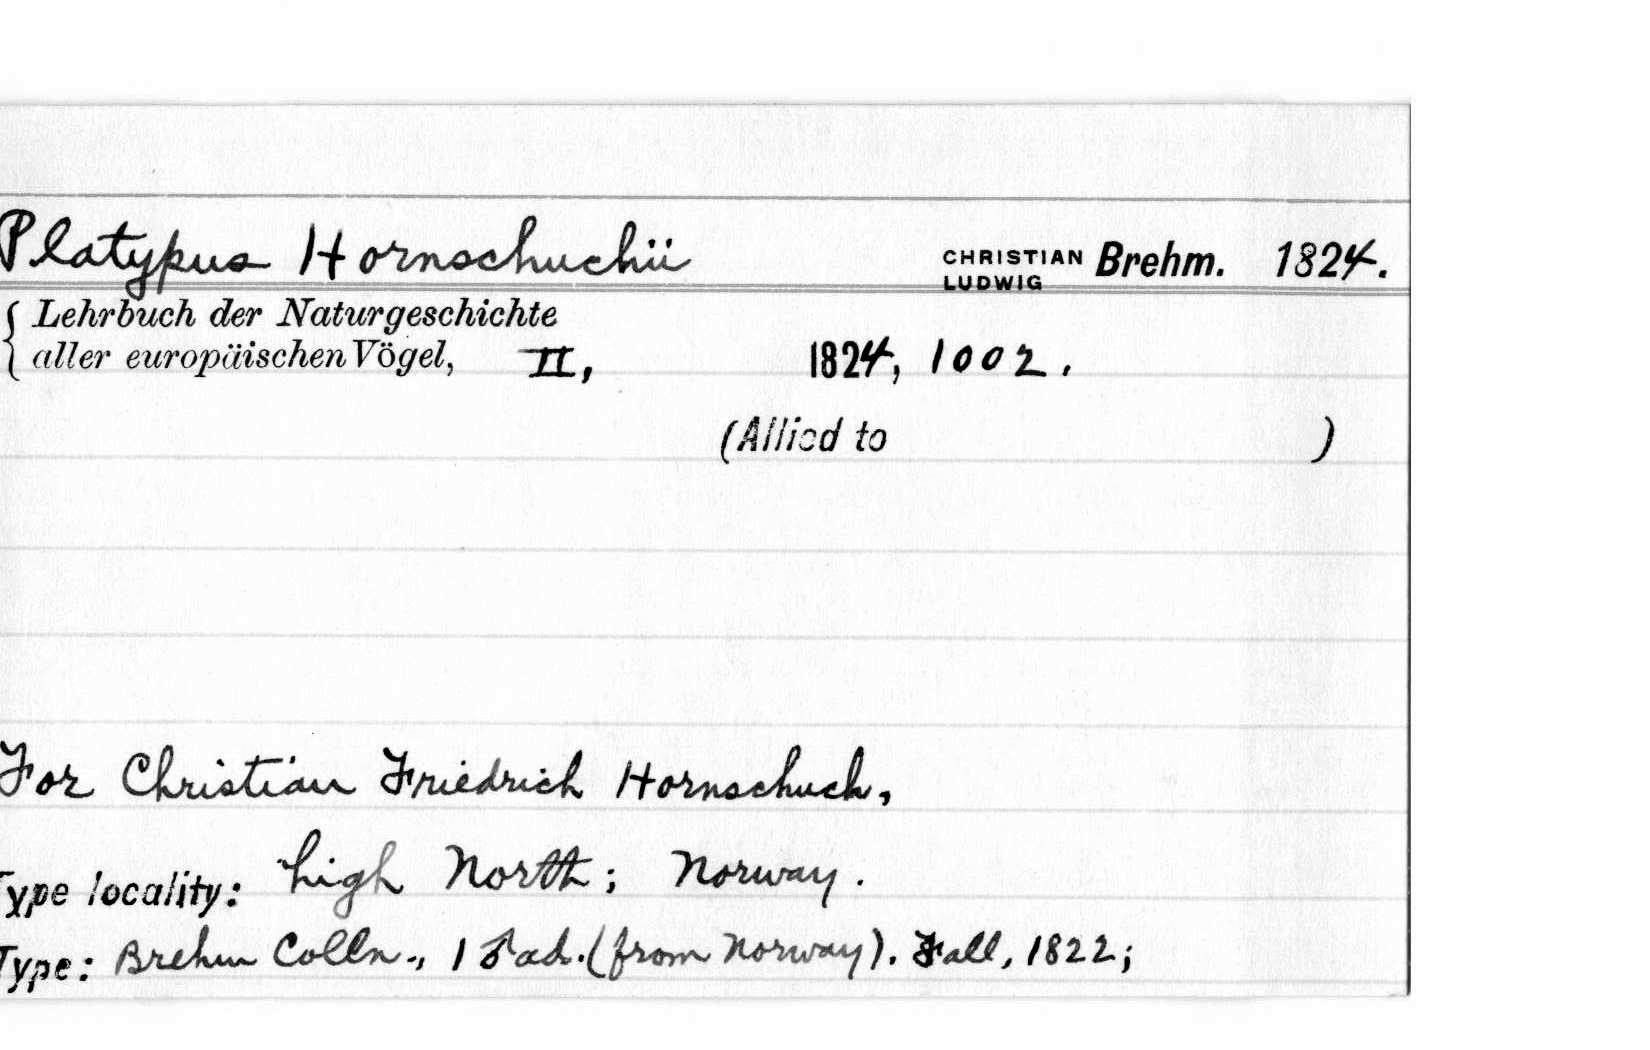 Platypus Hornschuchii CHRISTIAN LUDWIG Brehm. 1824.
Lehrbuch der Naturgeschichte
aller europäischen Vögel, II, 1824, 1002.
(Allied to )
For Christian Friedrich Hornschuch,
Type locality: high North; Norway.
Type: Brehm Colln., 1 ♂ ad. (from Norway). Fall, 1822;